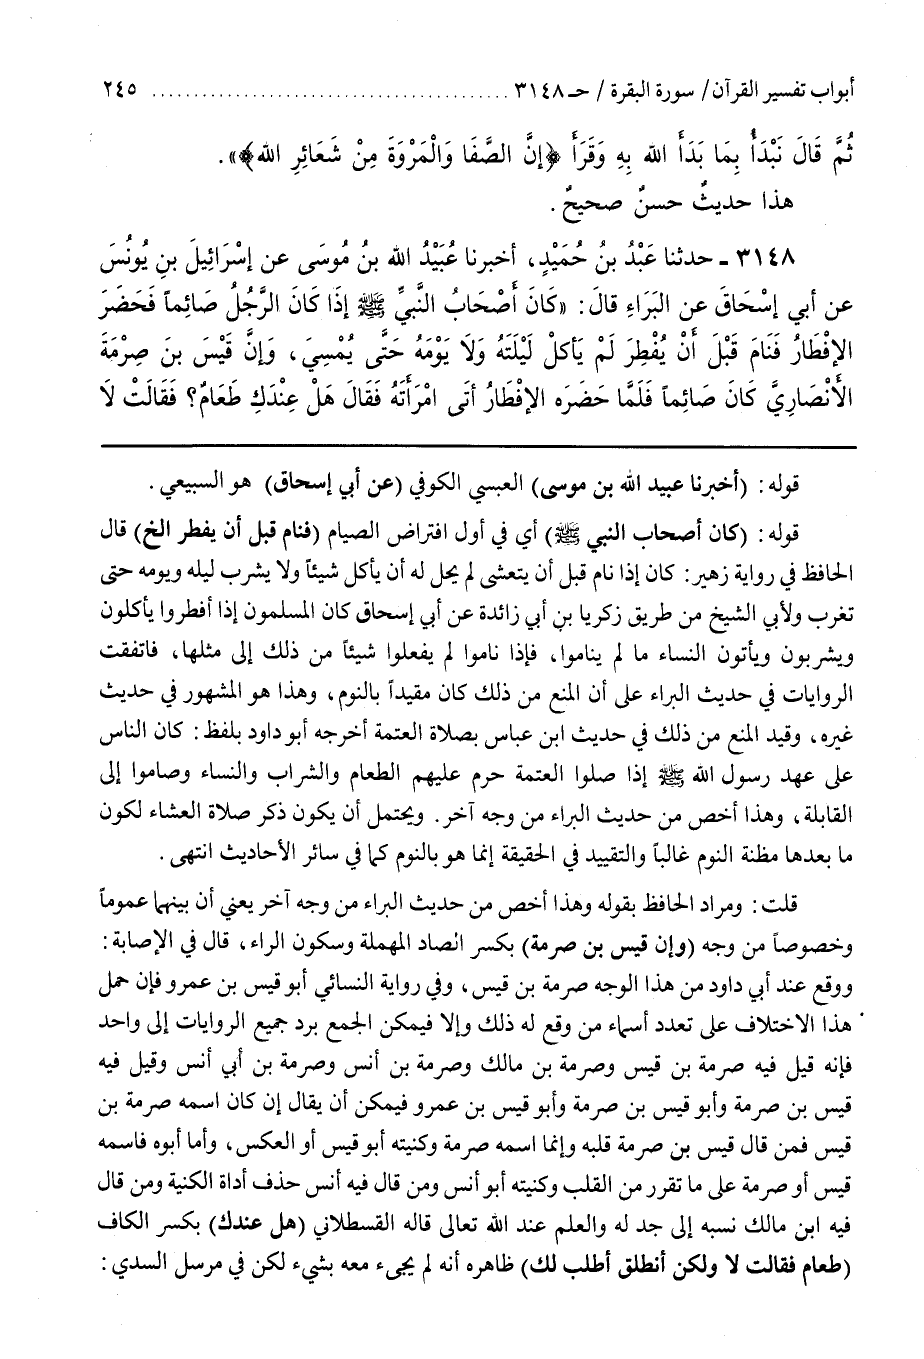 أبواب تفسير القرآن/ سورة البقرة / حـ ٣١٤٨ ........................................ ٢٤٥
ثُمَّ قَالَ نَبْدَأُ بِمَا بَدَأَ الله بِهِ وَقَرَأَ ﴿إنَّ الصَّفَا وَالْمَرْوَةَ مِنْ شَعَائِرِ الله﴾».
هذا حديثٌ حسنٌ صحيحٌ.
٣١٤٨ ـ حدثنا عَبْدُ بنُ حُمَيْدٍ، أخبرنا عُبَيْدُ الله بنُ مُوسَى عن إسْرَائِيلَ بنِ يُونُسَ
عن أبي إسْحَاقَ عن البَرَاءِ قالَ: «كَانَ أصْحَابُ النَّبيِّ ﷺ إذَا كَانَ الرَّجُلُ صَائِماً فَحَضَرَ
الإفْطَارُ فَنَامَ قَبْلَ أنْ يُفْطِرَ لَمْ يَأكلْ لَيْلَتَهُ وَلَا يَوْمَهُ حَتَّى يُمْسِيَ، وَإنَّ قَيْسَ بنَ صِرْمَةَ
الأنْصَارِيَّ كَانَ صَائِماً فَلَمَّا حَضَرَه الإفْطَارُ أتَى امْرَأتَهُ فَقَالَ هَلْ عِنْدَكِ طَعَامٌ؟ فَقَالَتْ لَا
قوله: (أخبرنا عبيد الله بن موسى) العبسي الكوفي (عن أبي إسحاق) هو السبيعي.
قوله: (كان أصحاب النبي ﷺ) أي في أول افتراض الصيام (فنام قبل أن يفطر الخ) قال
الحافظ في رواية زهير: كان إذا نام قبل أن يتعشى لم يحل له أن يأكل شيئاً ولا يشرب ليله ويومه حتى
تغرب ولأبي الشيخ من طريق زكريا بن أبي زائدة عن أبي إسحاق كان المسلمون إذا أفطروا يأكلون
ويشربون ويأتون النساء ما لم يناموا، فإذا ناموا لم يفعلوا شيئاً من ذلك إلى مثلها، فاتفقت
الروايات في حديث البراء على أن المنع من ذلك كان مقيداً بالنوم، وهذا هو المشهور في حديث
غيره، وقيد المنع من ذلك في حديث ابن عباس بصلاة العتمة أخرجه أبو داود بلفظ: كان الناس
على عهد رسول الله ﷺ إذا صلوا العتمة حرم عليهم الطعام والشراب والنساء وصاموا إلى
القابلة، وهذا أخص من حديث البراء من وجه آخر. ويحتمل أن يكون ذكر صلاة العشاء لكون
ما بعدها مظنة النوم غالباً والتقييد في الحقيقة إنما هو بالنوم كما في سائر الأحاديث انتهى.
قلت: ومراد الحافظ بقوله وهذا أخص من حديث البراء من وجه آخر يعني أن بينهما عموماً
وخصوصاً من وجه (وإن قيس بن صرمة) بكسر الصاد المهملة وسكون الراء، قال في الإصابة:
ووقع عند أبي داود من هذا الوجه صرمة بن قيس، وفي رواية النسائي أبو قيس بن عمرو فإن حمل
هذا الاختلاف على تعدد أسماء من وقع له ذلك وإلا فيمكن الجمع برد جميع الروايات إلى واحد
فإنه قيل فيه صرمة بن قيس وصرمة بن مالك وصرمة بن أنس وصرمة بن أبي أنس وقيل فيه
قيس بن صرمة وأبو قيس بن صرمة وأبو قيس بن عمرو فيمكن أن يقال إن كان اسمه صرمة بن
قيس فمن قال قيس بن صرمة قلبه وإنما اسمه صرمة وكنيته أبو قيس أو العكس، وأما أبوه فاسمه
قيس أو صرمة على ما تقرر من القلب وكنيته أبو أنس ومن قال فيه أنس حذف أداة الكنية ومن قال
فيه ابن مالك نسبه إلى جد له والعلم عند الله تعالى قاله القسطلاني (هل عندك) بكسر الكاف
(طعام فقالت لا ولكن أنطلق أطلب لك) ظاهره أنه لم يجىء معه بشيء لكن في مرسل السدي: